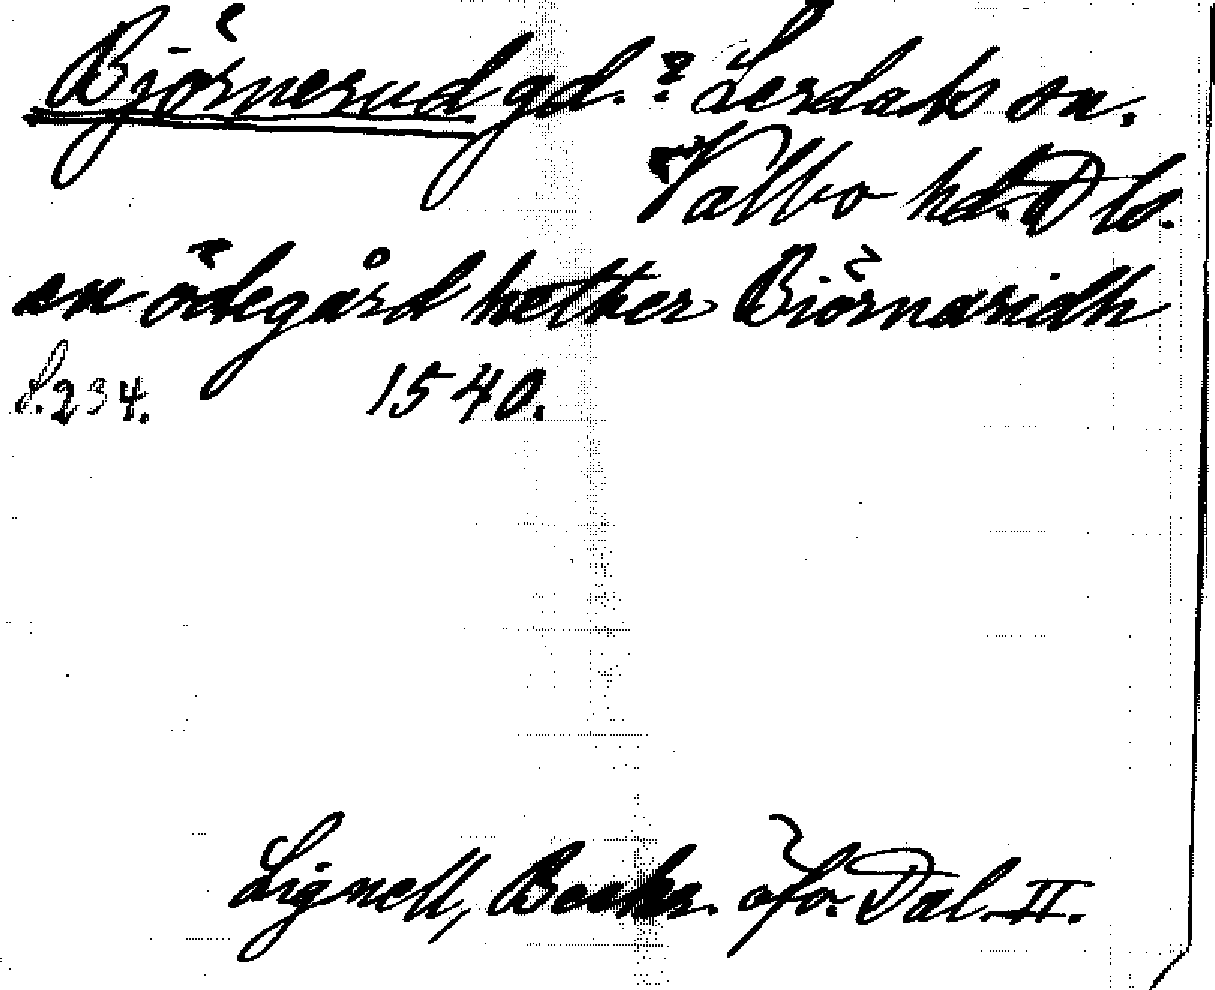 Björnerud gd.? Lerdals sn.
Valbo hd. Dls.
en ödegård hether Biörnaridh
S. 234. 1540.
Lignell, Beskr. öfv. Dal. II.